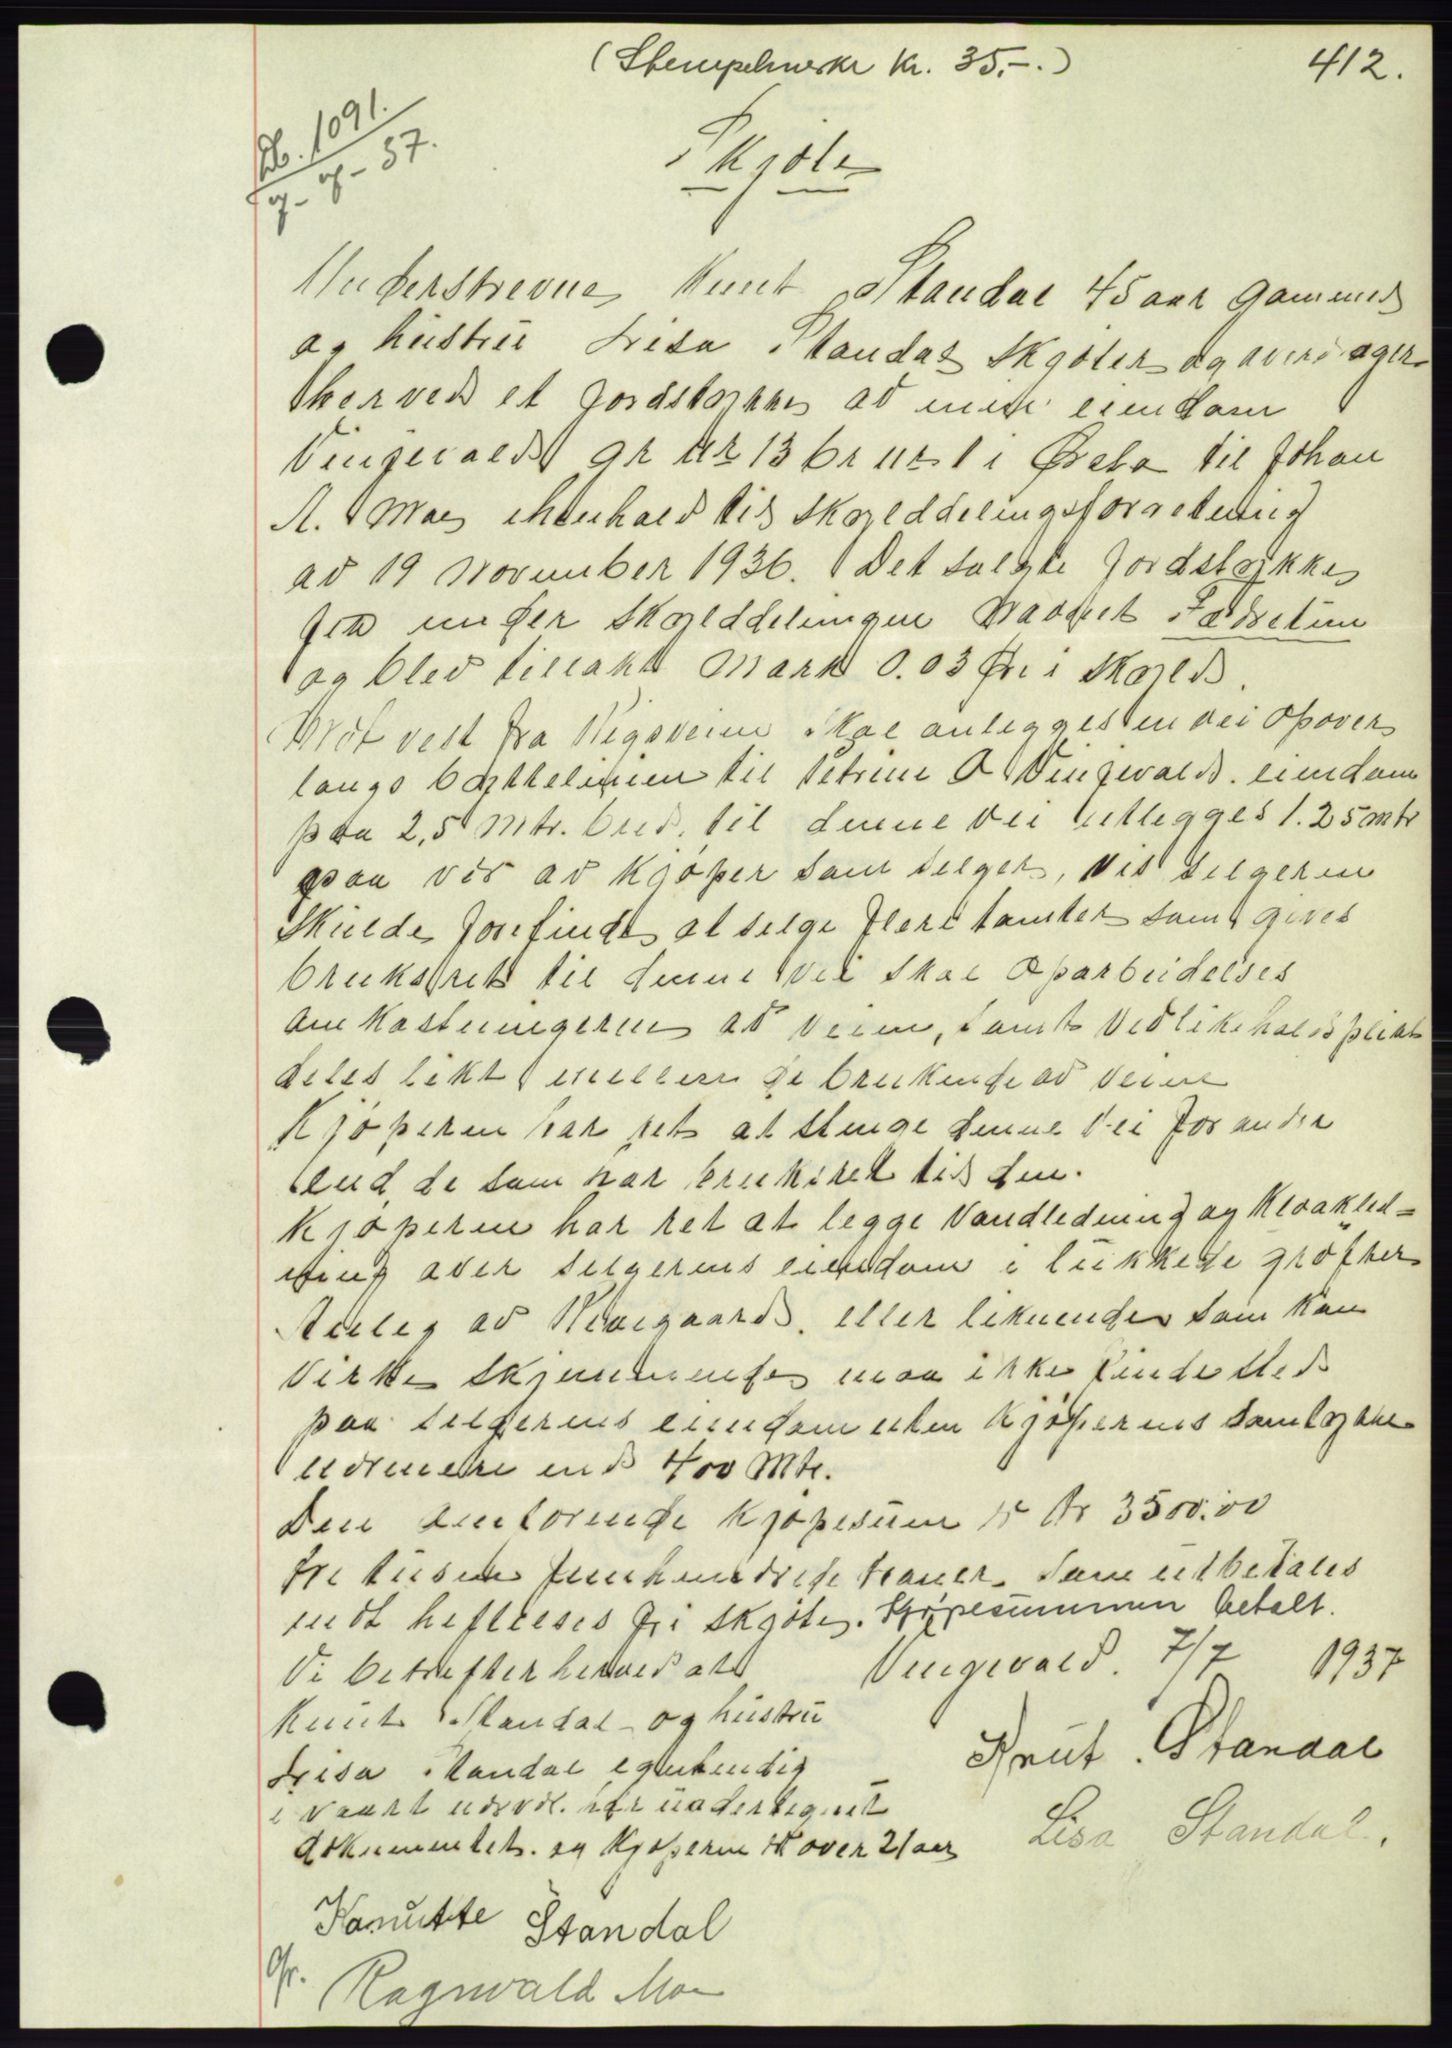 (Stempelmerke kr. 35.-.)
412.
Db. 1091.
7-7-37.
Skjøte
Underskrevne Knut Standal 45 aar gammel
og hustru Lisa Standal skjøter og overdrager
herved et jordstykke av min eiendom
Vingevold gr nr 13 br nr 1 i Ørsta til Johan
A. Moe ihenhold til skylddelingsforretning
av 19 November 1936. Det solgte jordstykke
fra under skylddelingen navnet Fredretun
og blev tillakt Mark 0.03 Øre i skyld.
Mot vest fra Rigsveien skal anlegges en vei opover
langs byttelinien til Petrine O Vingevolds eiendom
paa 2,5 Mtr. bred, til denne vei utlegges 1.25 mtr
paa vær av kjøper som selger, vis selgeren
skulde forefinde at selge flere tomter som gives
bruksret til denne vei skal oparbeidelses
omkostningerne av veien, samt vedlikeholdsplikt
deles likt mellem de brukende av veien
Kjøperen har ret at stenge denne vei for andre
end de som har bruksret til den.
Kjøperen har ret at legge Vandledning og Kloakled=
ning over selgerens eiendom i lukkede grøfter
Anleg av Revegaard. eller liknende som kan
virke skjemmende maa ikke finde sted
paa selgerens eiendom uten kjøperens samtykke
nærmere end 400 Mtr.
Den omforende kjøpesum er Kr 3500.00
tre tusen femhundrede kroner som utbetales
mot heftelses fri skjøte. Kjøpesummen betalt.
Vi bekrefter herved at
Vingevold. 7/7 1937
Knut Standal og hustru
Knut. Standal
Lisa Standal egenhendig
i vaart nærvær har undertegnet
Lisa Standal.
dokumentet. og kjøperen er over 21 aar
Kanutte Standal
Ragnvald Moe